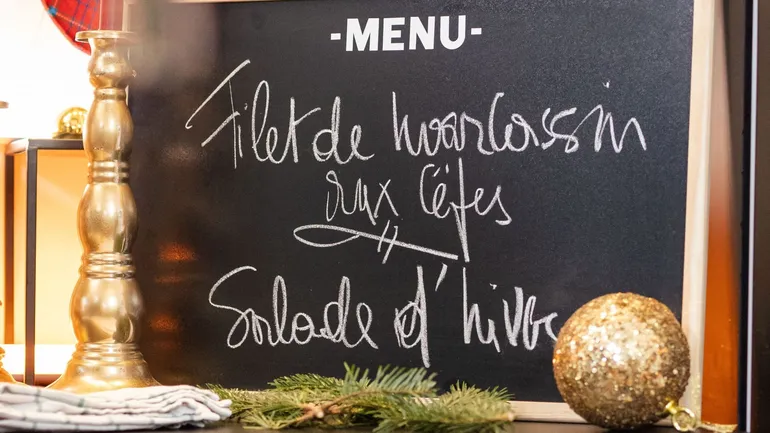 -MENU-
Filet de marcassin
aux Cèpes
Salade d'hiver